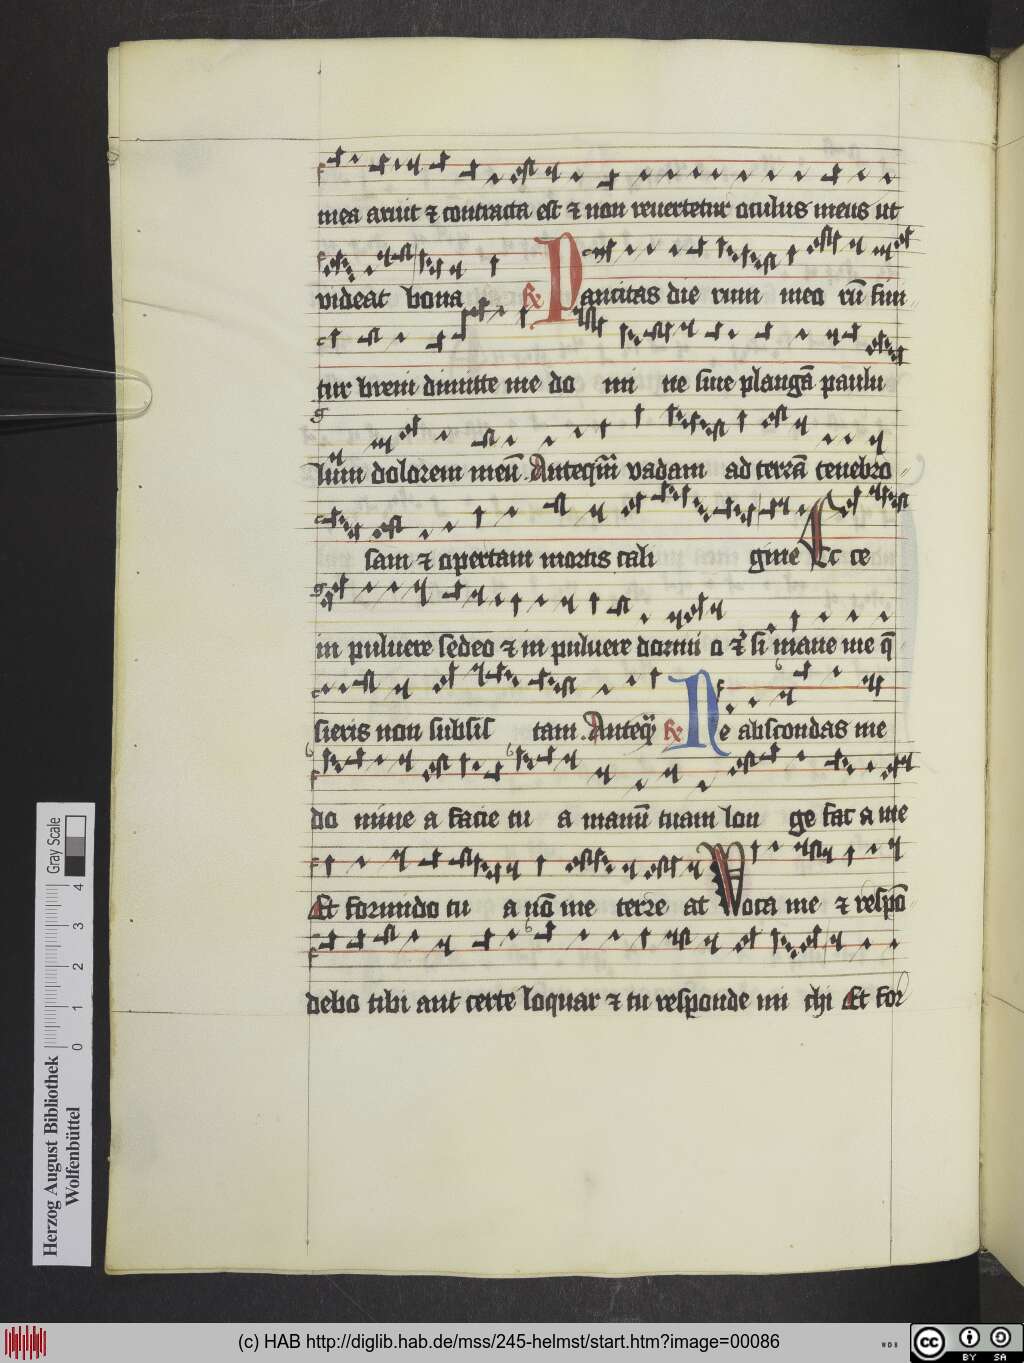 mea aruit ⁊ contracta est ⁊ non reuertetur oculus meus ut
videat bona ℟ Paucitas die rum mea rū fini
tur breui dimitte me do mi ne sine plangā paulu
lum dolorem meū. Anteqm̄ vadam ad terrā tenebro
sam ⁊ opertam mortis cali gine Ec ce
in puluere sedeo ⁊ in puluere dormi o ⁊ si mane me q̄
sieris non subsis tam. Anteq̄ ℟ Ne abscondas me
do mine a facie tu a manū tuam lon ge fac a me
Et formido tu a nō me terre at Voca me ⁊ respō
debo tibi aut certe loquar ⁊ tu responde mi chi Et for
Gray Scale
0 1 2 3 4
Herzog August Bibliothek
Wolfenbüttel
(c) HAB http://diglib.hab.de/mss/245-helmst/start.htm?image=00086
WDB
cc BY SA